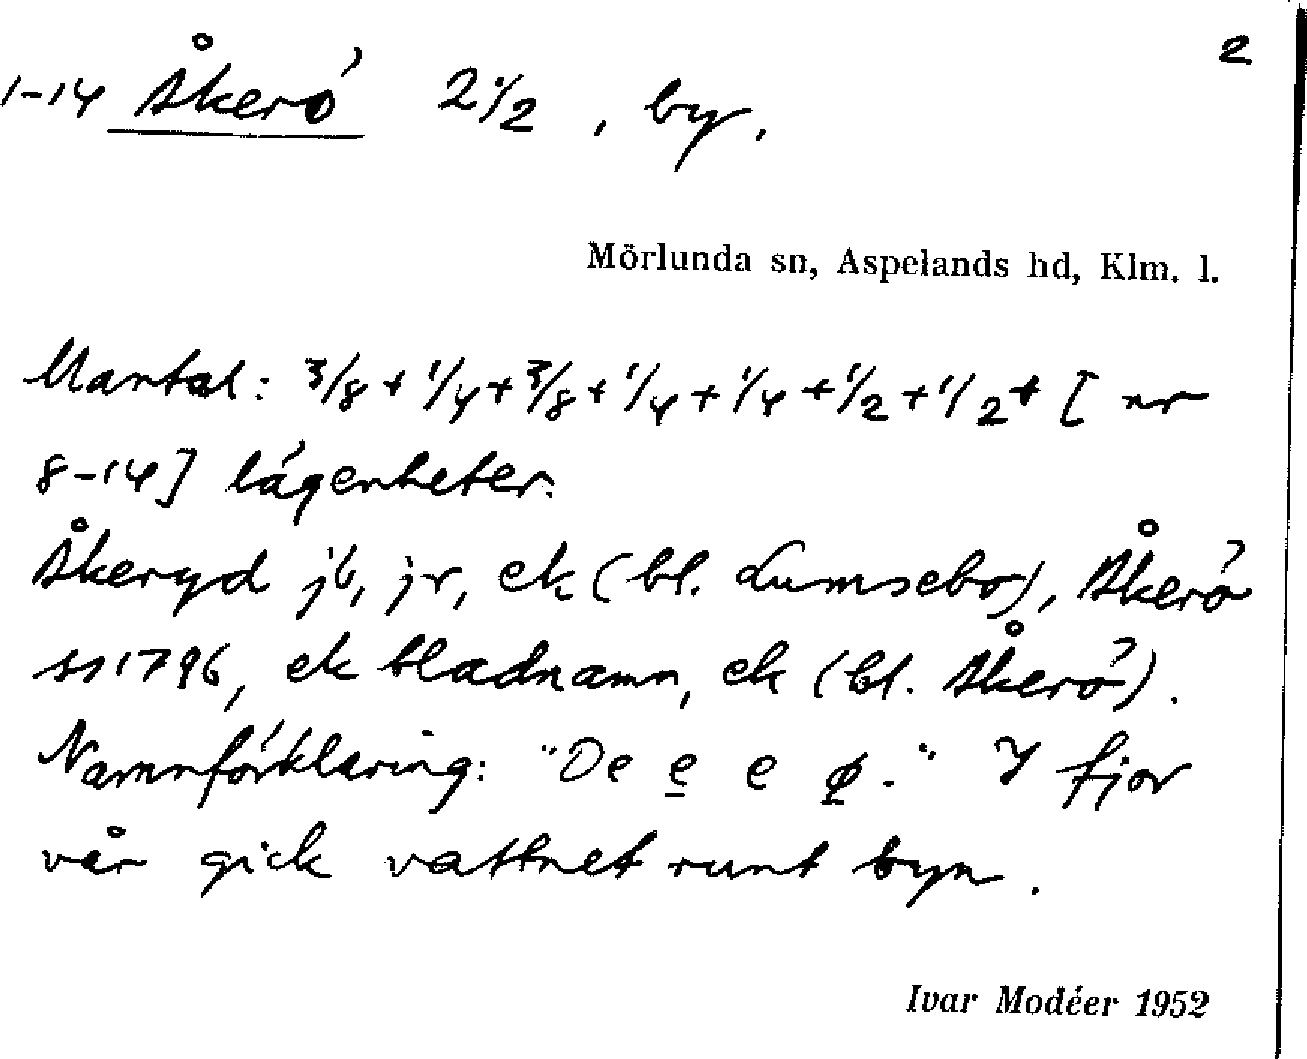 2
1-14 Åkerö 2 1/2, by.
Mörlunda sn, Aspelands hd, Klm. l.
Mantal: 3/8 + 1/4 + 3/8 + 1/4 + 1/4 + 1/2 + 1/2 + [nr
8-14] lägenheter.
Åkeryd jb, jr, ek (bl. Lumsebo), Åkerö
ss 1796, ek bladnamn, ek (bl. Åkerö).
Namnförklaring: "De e̲ e ø̲." I fjor
vår gick vattnet runt byn.
Ivar Modéer 1952